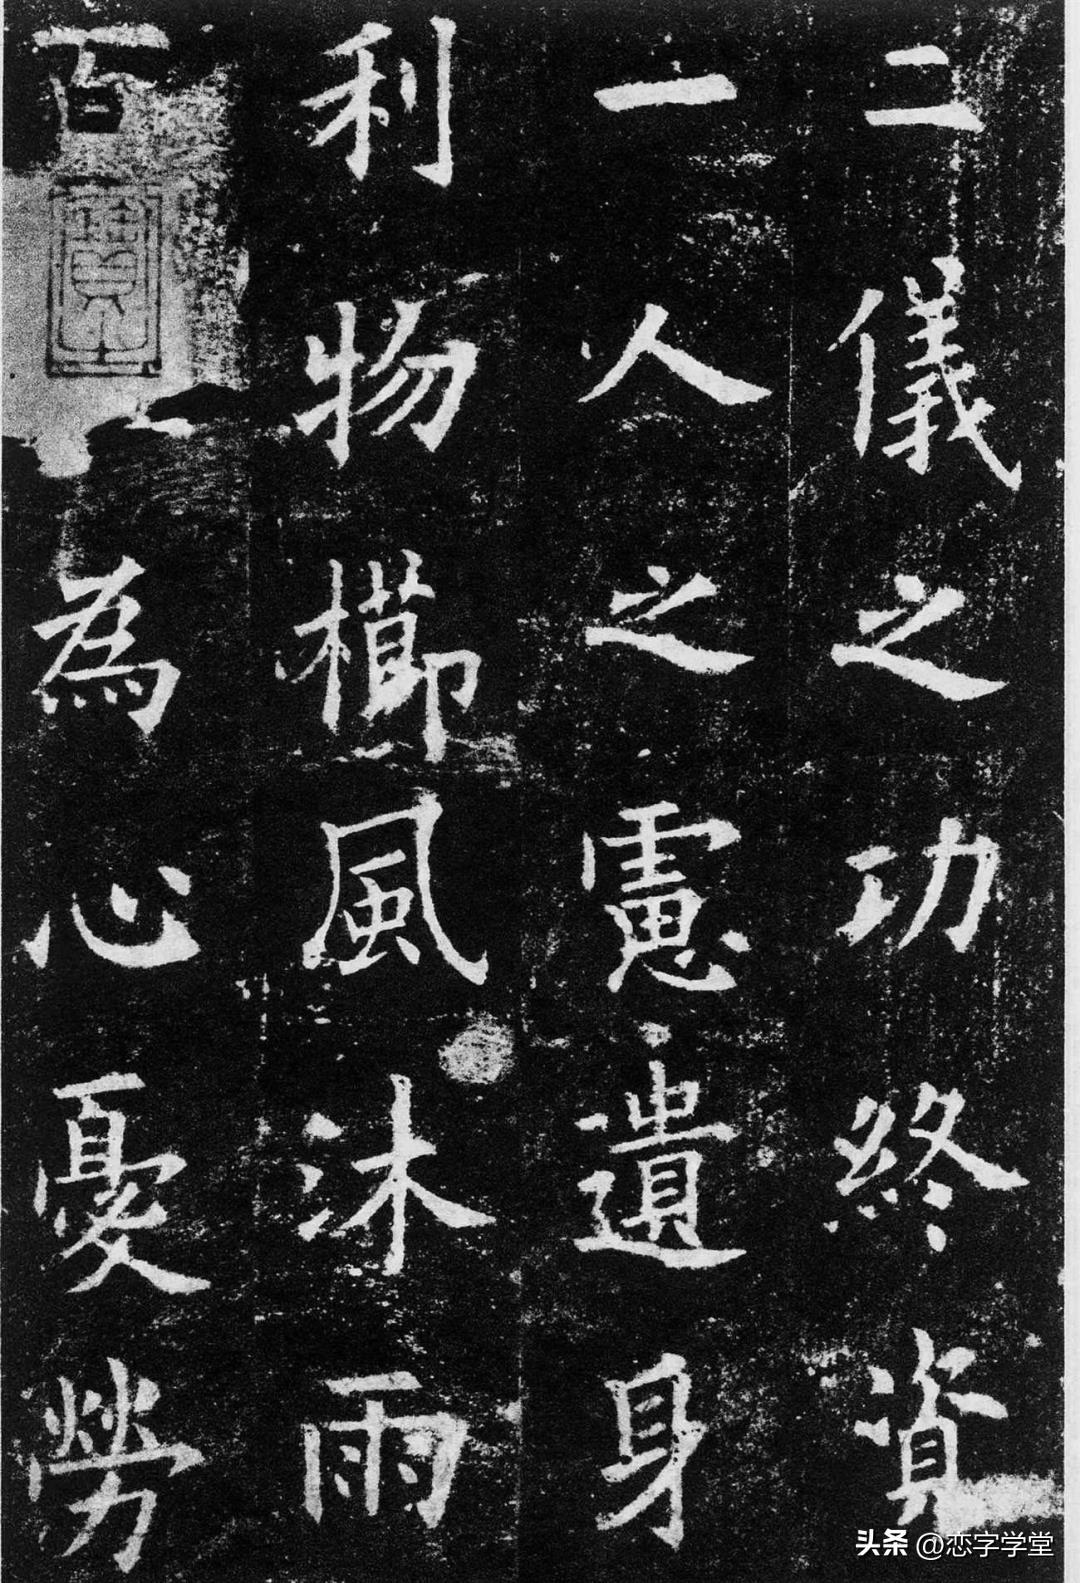 二儀之功終資
一人之慮遺身
利物櫛風沐雨
百 為心憂勞
头条 @恋字学堂